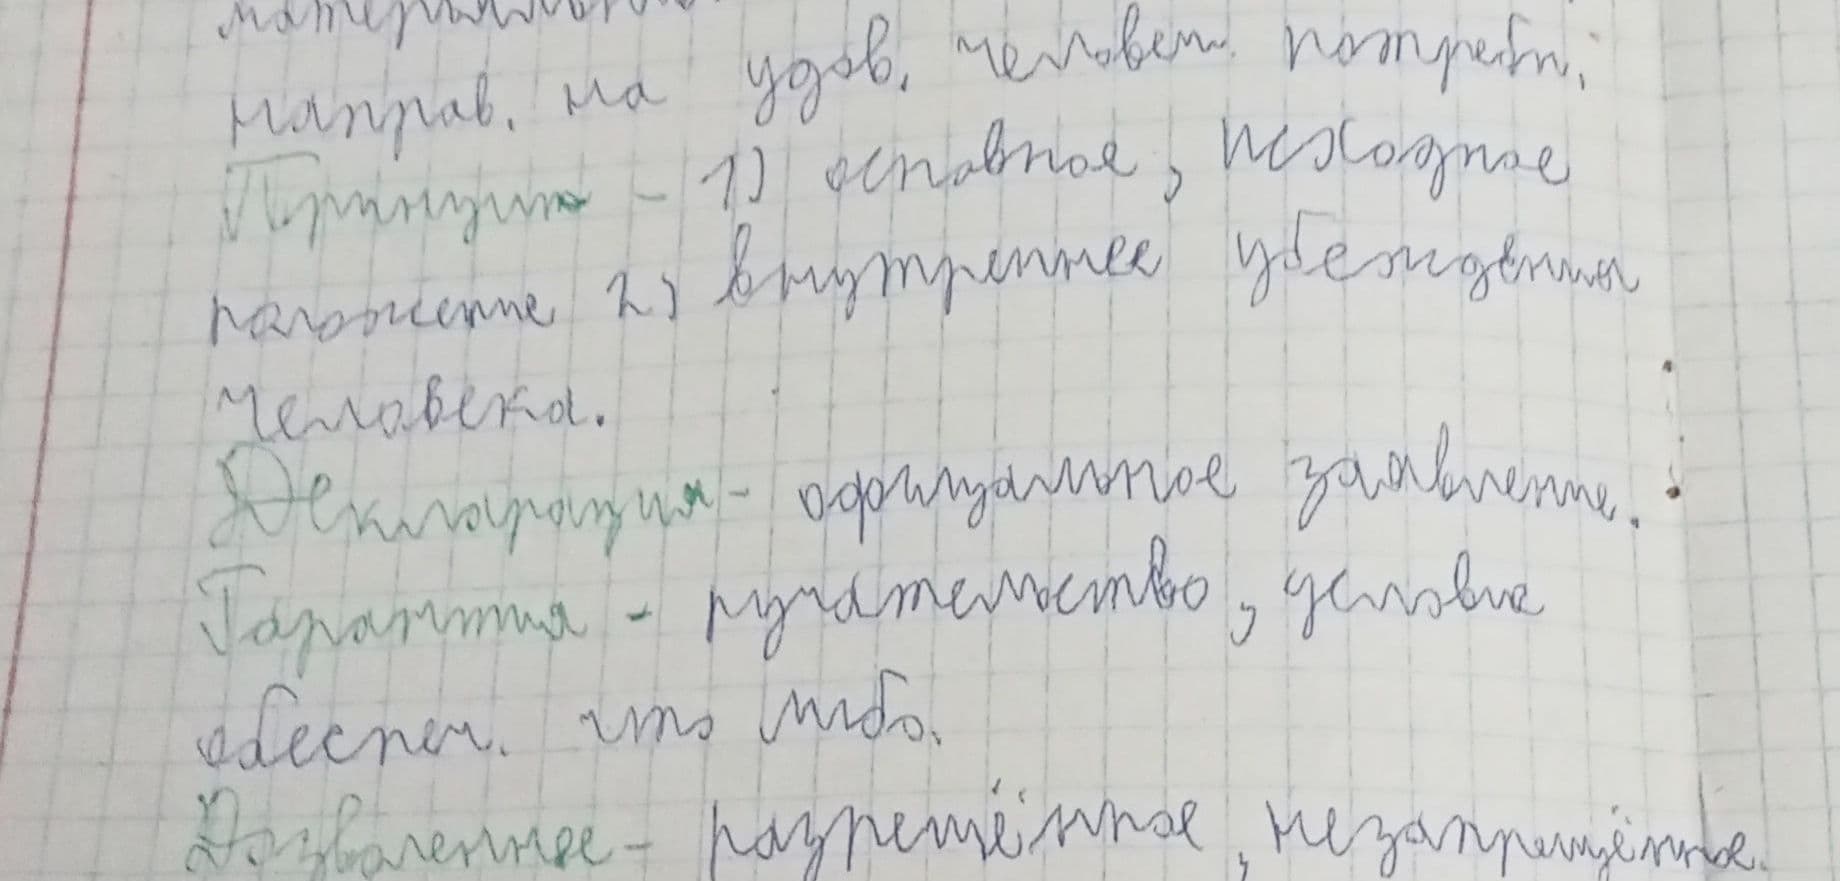 направ. на удов. человеч. потребн.
Принцип - 1) основное, исходное
положение 2) внутреннее убеждения
человека.
Декларация - официальное заявление.
Гарантия - ручательство, условие
обеспеч. что либо.
Дозволенное - разрешённое, незапрещённое.